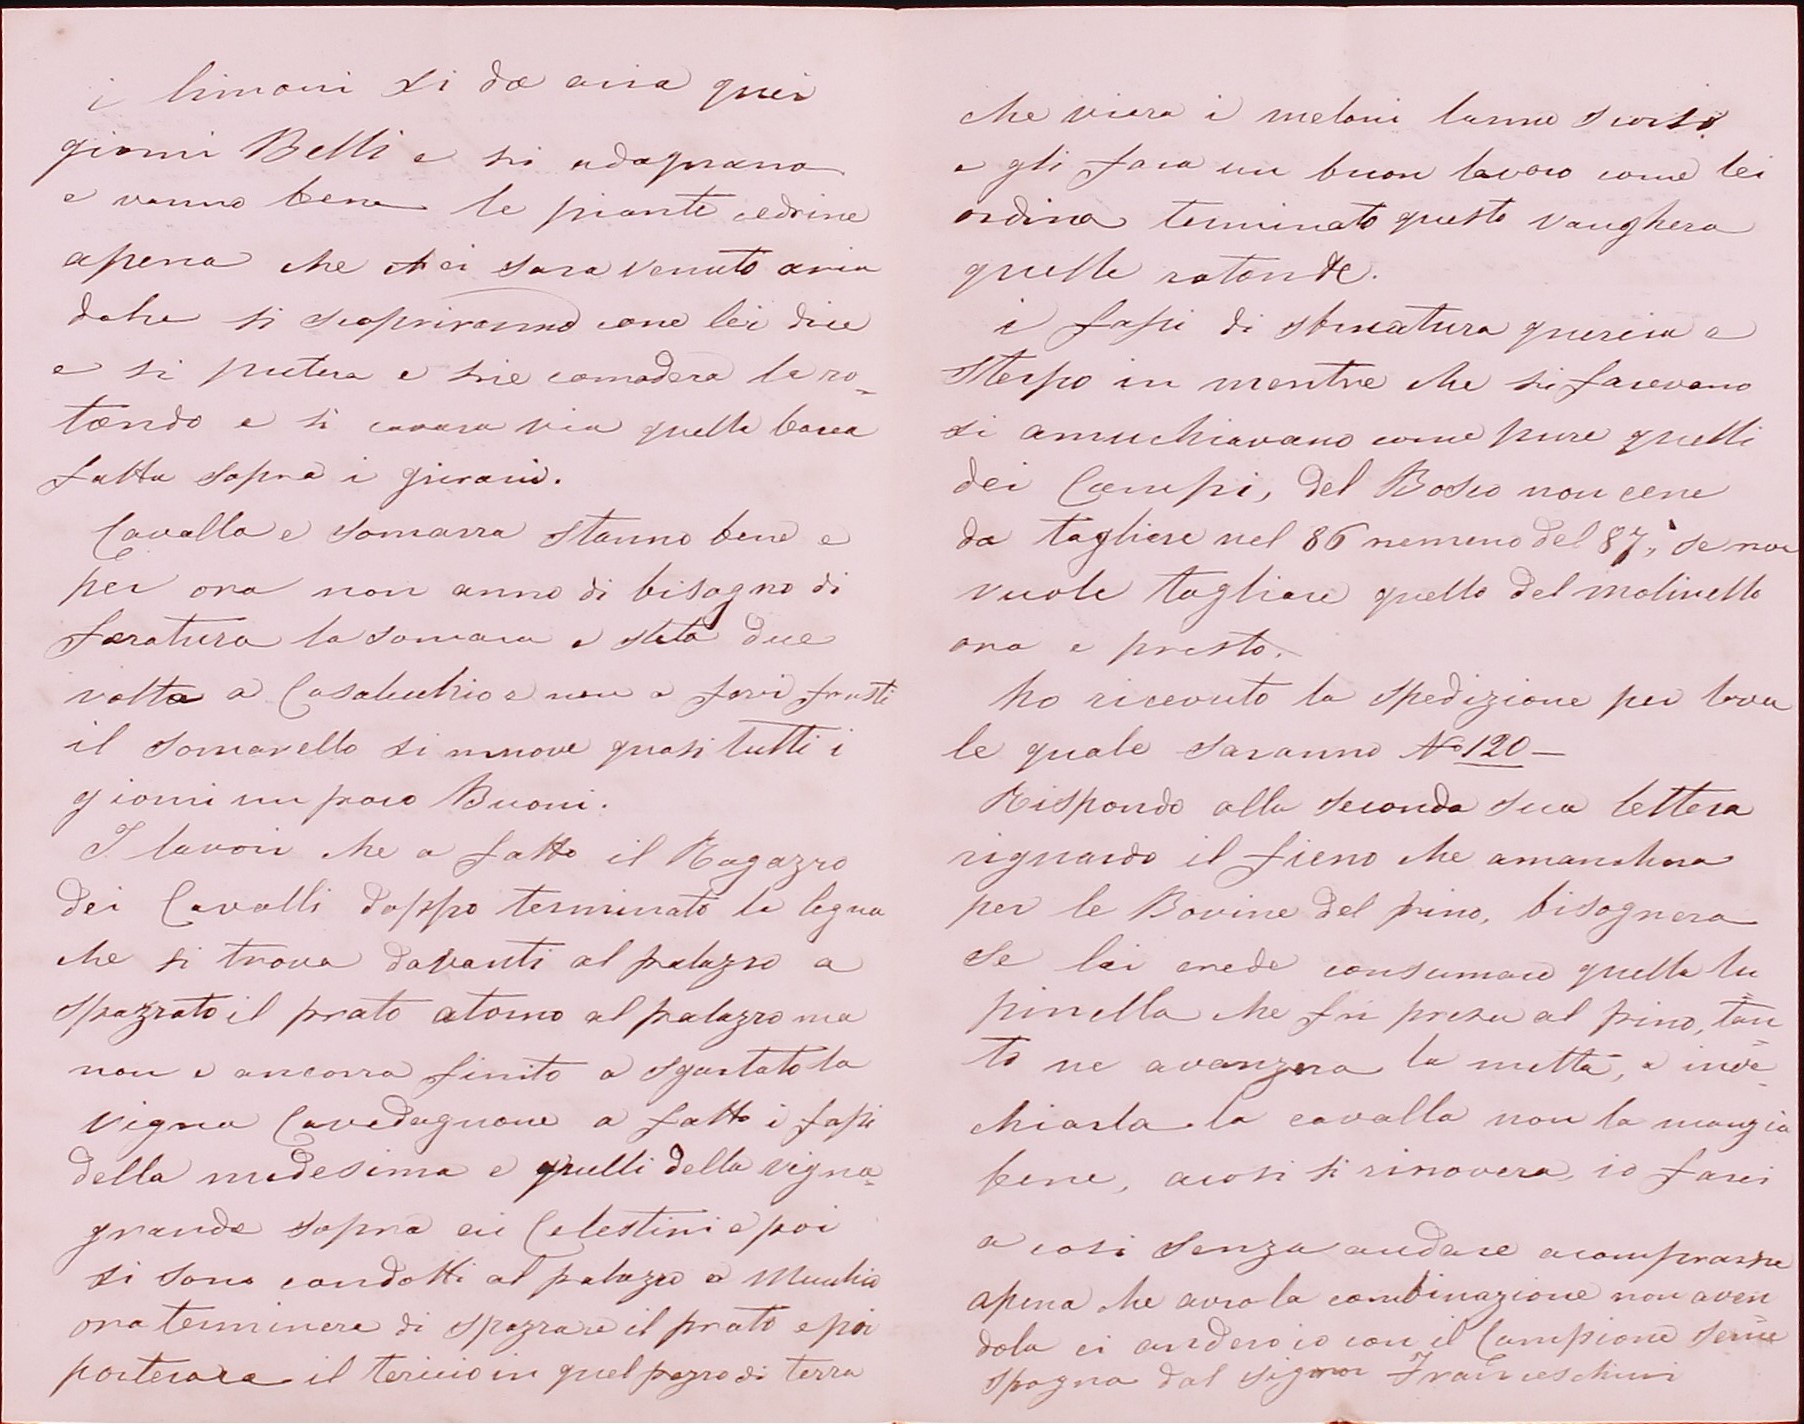 i limoni si da aria quei
giorni Belli e si adaquano
e vanno bene le piante cedrine
apena che lei sara venuto aria
dohe si scopriranno come lei dice
e si putera e sie comodera la ro-
tondo e si cavara via quella
fatta sopra i girani.
Cavalla e somarra stanno bene e
per ora non anno di bisogno di
feratura la somara e stata due
volta a Casalechio e non a feri frusti
il somarello si muove quasi tutti i
giorni un poco Buoni.
I lavori che a fatto il Ragazzo
dei Cavalli doppo terminato la legna
che si trova davanti al palazzo a
spazzato il prato atorno al palazzo ma
non e ancorra finito a sgartato la
vigna Cavedagnone a fatto i fassi
della medesima e quelli della vigna-
grande sopra ei Celestini e poi
si sono condotti al palazzo a Muchio
ora terminera di spazzare il prato e poi
porterara il tericio in quel pezzo di terra
che viera i meloni lanno scorso
e gli fara un buon lavoro come lei
ordina terminato questo vanghera
quelle rotonde.
i fassi di sbrucatura quercia e
sterpo in mentre che si facevano
si amuchiavano come pure quelli
dei Campi, del Bosco non cene
da tagliare nel 86 nemeno del 87, se non
vuole tagliare quello del molinello
ora e presto.
ho ricevuto la spedizione per
le quale saranno No 120 —
Rispondo alla seconda sua lettera
riguardo il fieno che amanchera
per le Bovine del pino, bisognera
se lei crede consumare quella lu
pinella che fu presa al pino, tan
to ne avanzera la metta, e inve-
chiarla la cavalla non la mangia
bene, acosi si rinovera, io farei
a cosi senza andare acomprarne
apena che avro la combinazione non aven
dola ci andero io con il Campione seme
spagna dal signor Franceschini